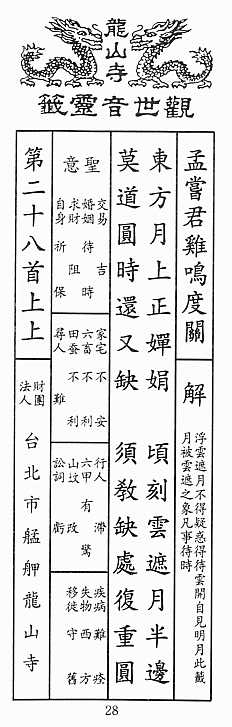 龍山寺
觀世音靈籤
孟嘗君雞鳴度關
解
浮雲遮月不得疑惑得待雲開自見明月此籤
月被雲遮之象凡事待時
東方月上正嬋娟 頃刻雲遮月半邊
莫道圓時還又缺 須教缺處復重圓
聖意
交易 吉
婚姻 待時
求財 阻
自身 祈保
家宅 不安
六畜 不利
田蚕 不利
尋人 難
行人 滯
六甲 有驚
山坟 改
訟詞 虧
疾病 難痊
失物 西方
移徙 守舊
第二十八首上上
財團法人 台北市艋舺龍山寺
28